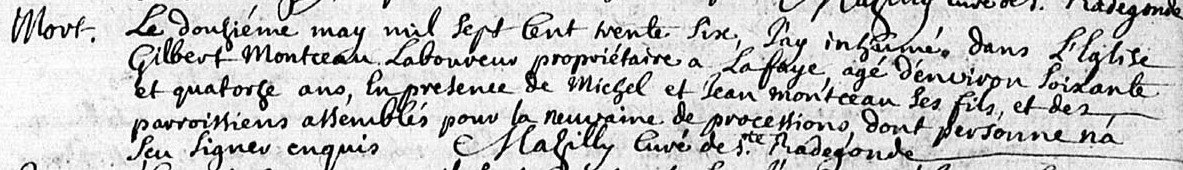 Mazilly curé de Ste Radegonde
Mort. Le douziéme may mil sept cent trente six, J'ay inhumé dans L'Eglise
Gilbert Montceau Laboureur propriétaire a Lafaye, agé d'environ soixante
et quatorze ans, En presence de Michel et Jean montceau ses fils, et des
parroissiens assemblés pour la neuvaine de processions, dont personne n'a
sçu signer enquis Mazilly Curé de Ste Radegonde